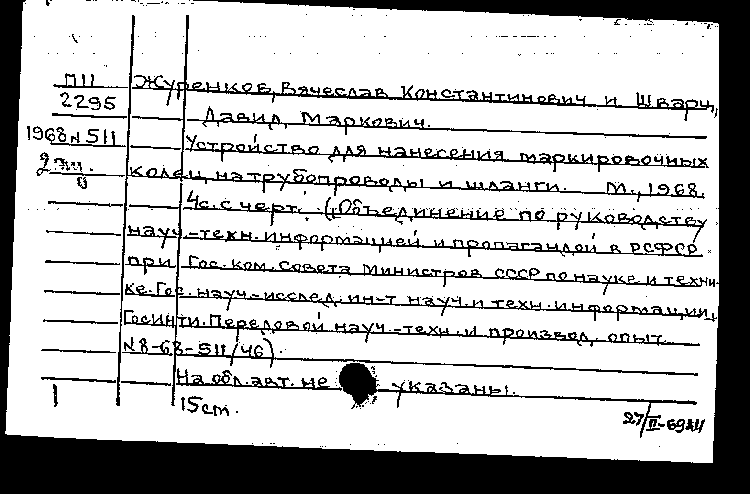 П11 Журенков, Вячеслав Константинович и Шварц,
2295 Давид Маркович.
1968 N 511 Устройство для нанесения маркировочных
колец на трубопроводы и шланги. М., 1968.
4с. с черт. („Объединение по руководству
науч.-техн. информацией и пропагандой в РСФСР
при Гос. ком. Совета Министров СССР по науке и техни-
ке. Гос. науч.-исслед. ин-т науч. и техн. информации,
ГосИНТИ. Передовой науч.-техн. и производ. опыт
N8-68-511/46).
На обл. авт. не указаны.
15 cm. 27/II-69